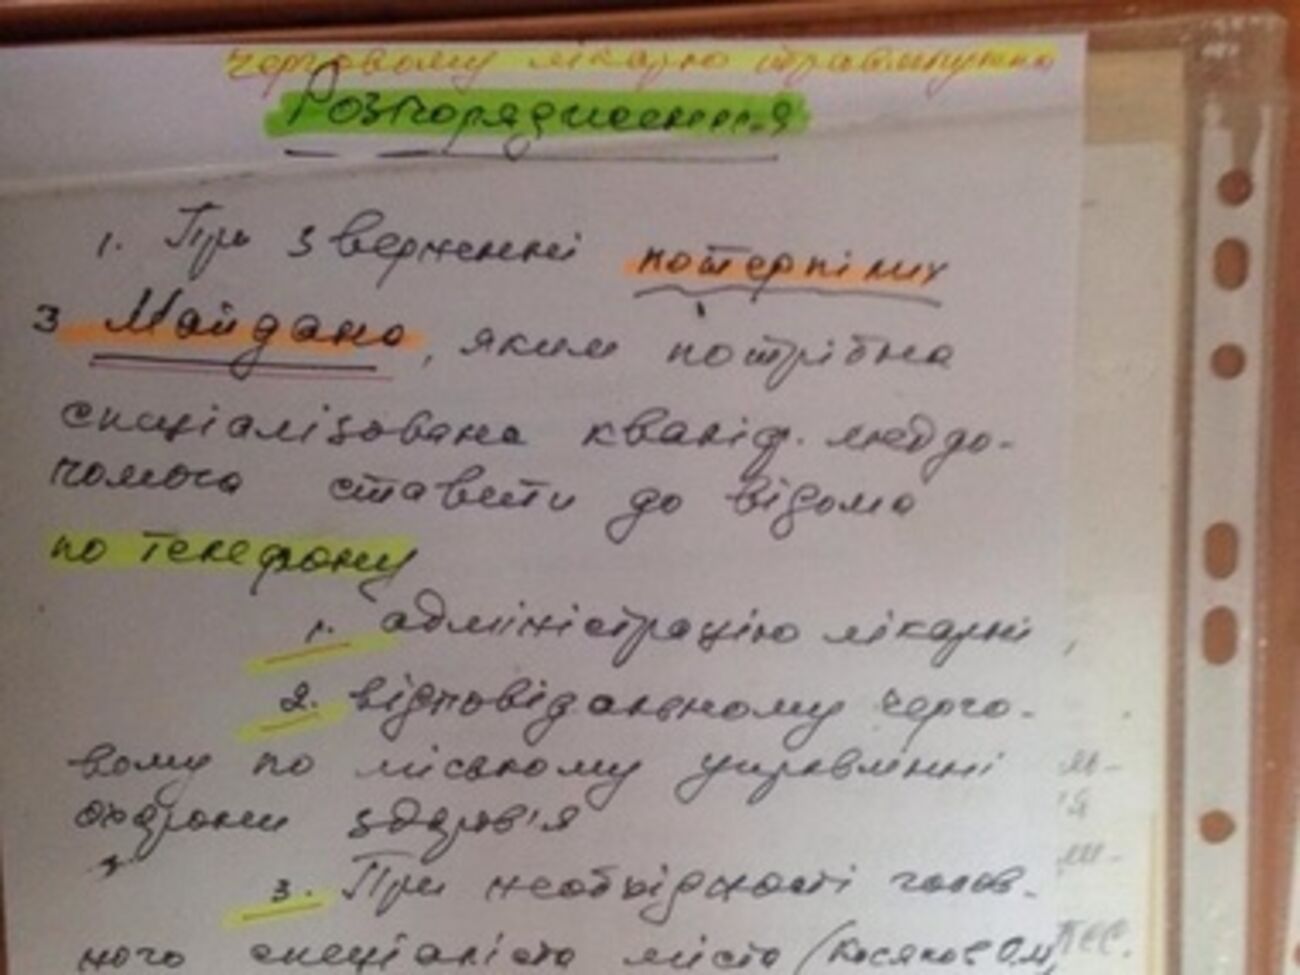 черговому лікарю травмпункта
Розпорядження
1. При зверненні потерпілих
з Майдано, яким потрібна
спеціалізована кваліф. меддо-
помога ставити до відома
по телефону
1. адміністрацію лікарні,
2. відповідальному черго-
вому по міському управлінні
охорони здоров'я
3. При необхідності голов-
ного спеціаліста міста (